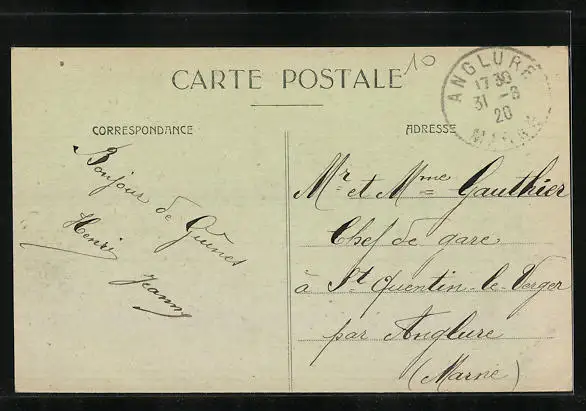 CARTE POSTALE
10
ANGLURE
17 30
31 -8
20
MARNE
CORRESPONDANCE
ADRESSE
Bonjour de Guines
Henri
Jeanny
Mr et Mme Gauthier
Chef de gare
à St Quentin-le-Verger
par Anglure
(Marne)